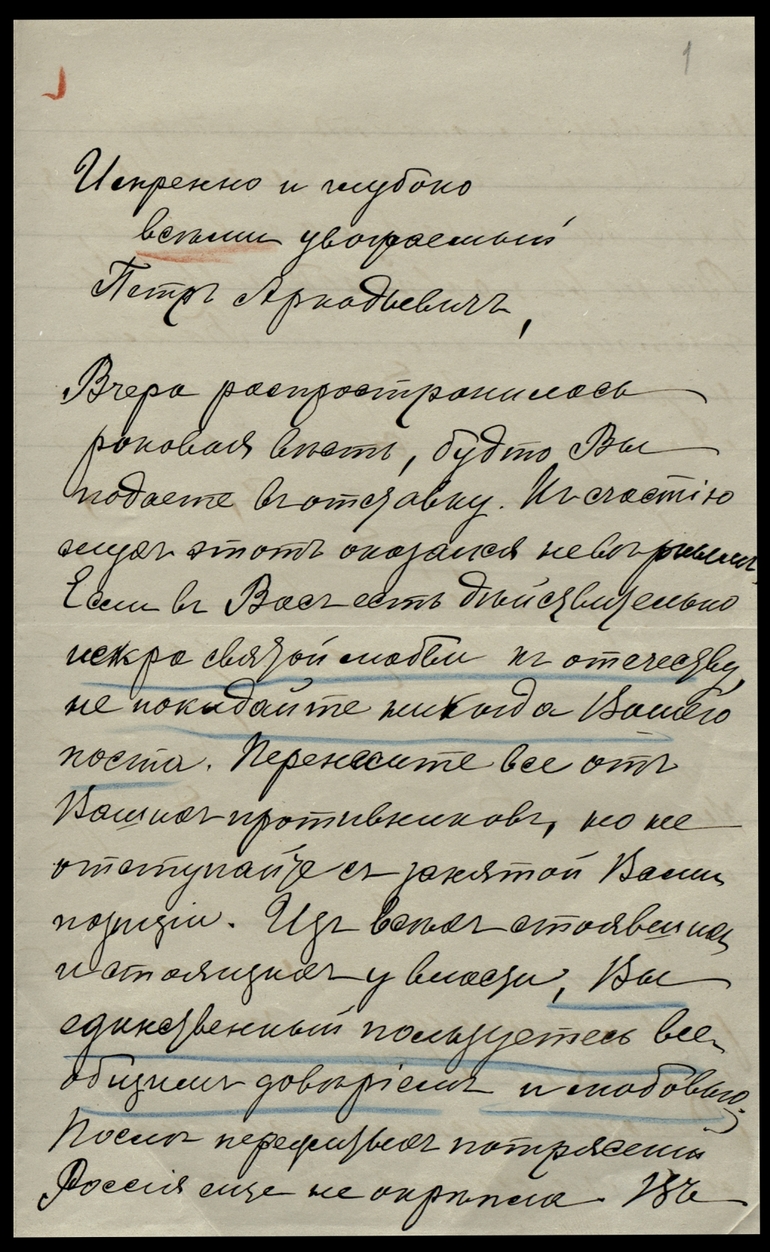 1
Искренно и глубоко
всѣми уважаемый
Петръ Аркадьевичъ,
Вчера распространилась
роковая вѣсть, будто Вы
подаете въ отставку. Къ счастію
слухъ этотъ оказался невѣрнымъ.
Если въ Васъ есть дѣйствительно
искра святой любви къ отечеству,
не покидайте никогда Вашего
поста. Перенесите все отъ
Вашихъ противниковъ, но не
отступайте съ занятой Вами
позиціи. Изъ всѣхъ стоявшихъ
и стоящихъ у власти, Вы
единственный пользуетесь все-
общимъ довѣріемъ и любовью;
Послѣ пережитыхъ потрясеній
Россія еще не окрѣпла.